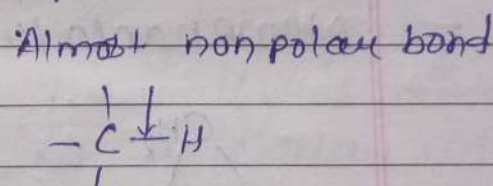 Almost non polar bond
- C - H